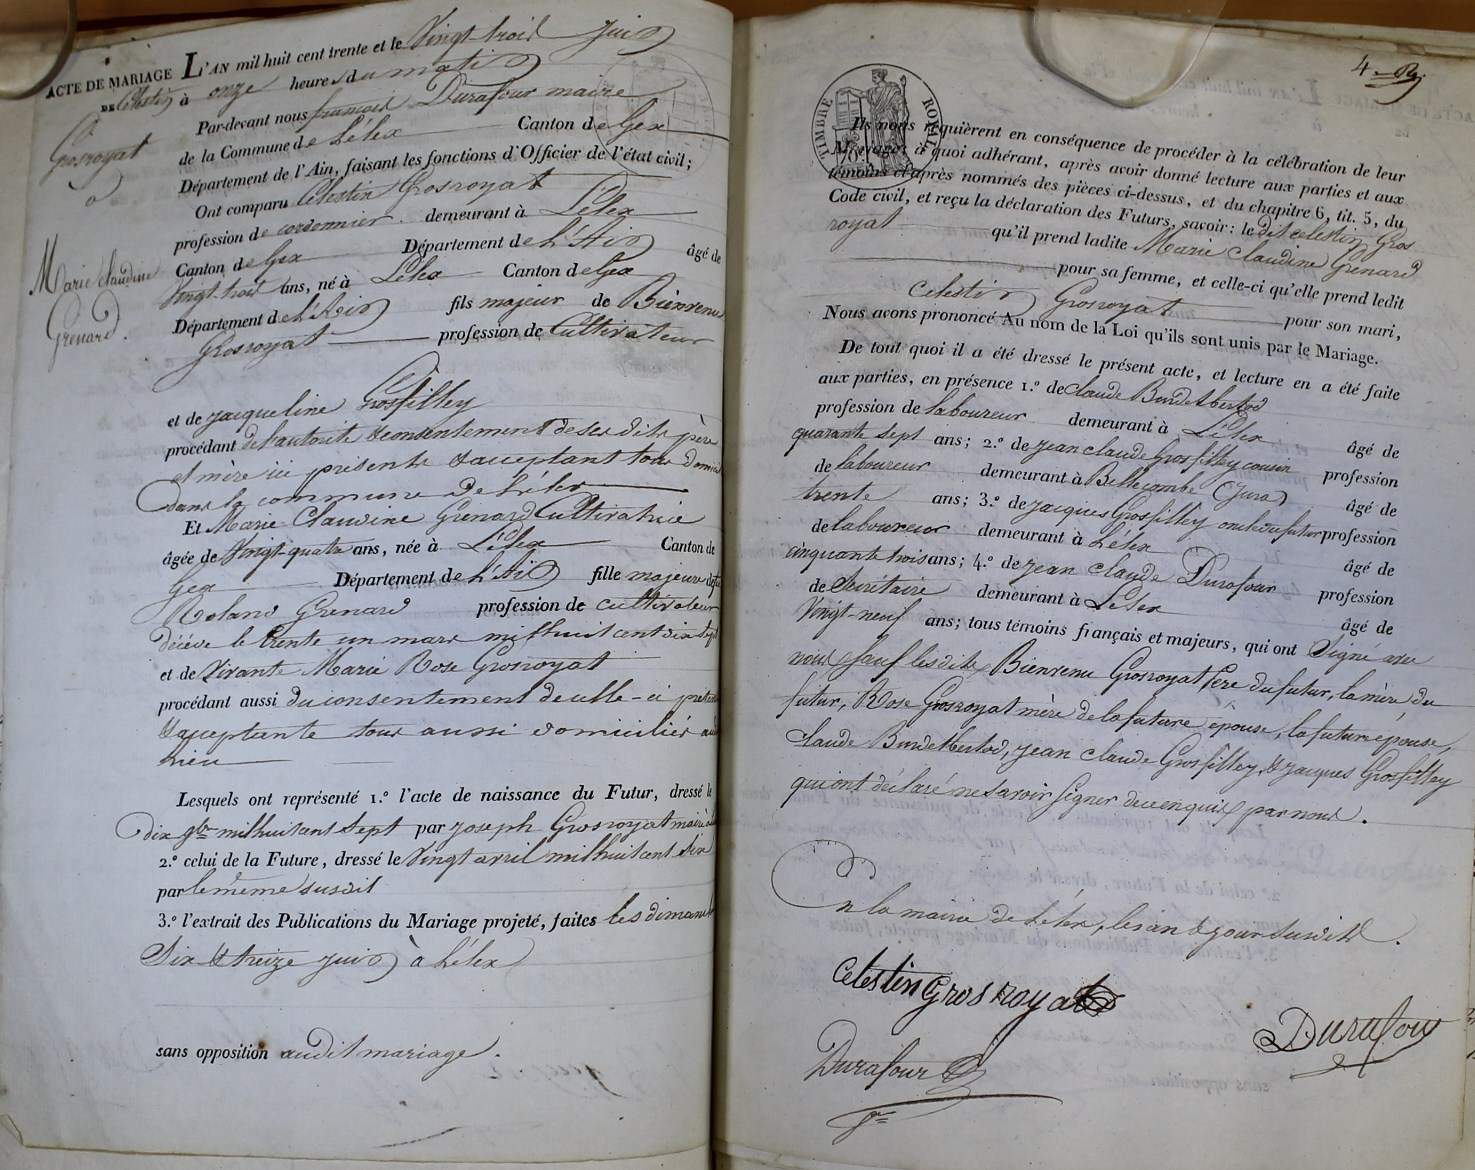 ACTE DE MARIAGE L'AN mil huit cent trente et le Vingt trois juin
DE Célestin à onze heures du matin
Grosroyat
Par-devant nous françois Durafour maire
de la Commune de Lélex Canton de Gex
Département de l'Ain, faisant les fonctions d'Officier de l'état civil;
Ont comparu Célestin Grosroyat
profession de cordonnier demeurant à Lélex
Marie Claudine
Grénard.
Canton de Gex Département de L'Ain âgé de
Vingt-trois ans, né à Lélex Canton de Gex
Département de L'Ain fils majeur de Bienvenu
Grosroyat profession de Cultivateur
et de jacqueline Grosfilley
procédant de l'autorité & consentement de ses dits père
et mère ici présents & acceptant tous domiciliés
dans la commune de Lélex
Et Marie Claudine Grenard Cultivatrice
âgée de Vingt-quatre ans, née à Lélex Canton de
Gex Département de L'Ain fille majeure de feu
Roland Grenard profession de cultivateur
décédé le trente un mars mil huit cent dix sept
et de Vivante Marie Rose Grosroyat
procédant aussi du consentement de celle-ci présente
& acceptante tous aussi domiciliés au dit
Lieu
Lesquels ont représenté 1.º l'acte de naissance du Futur, dressé le
dix 9bre mil huit cent sept par joseph Grosroyat maire
2.º celui de la Future, dressé le Vingt avril mil huit cent six
par le même susdit
3.º l'extrait des Publications du Mariage projeté, faites les dimanches
Six & treize juin à Lélex
sans opposition audit mariage.
TIMBRE ROYAL
Ils nous requièrent en conséquence de procéder à la célébration de leur
Mariage; à quoi adhérant, après avoir donné lecture aux parties et aux
témoins ci-après nommés des pièces ci-dessus, et du chapitre 6, tit. 5, du
Code civil, et reçu la déclaration des Futurs, savoir: le dit célestin Gros
royat qu'il prend ladite Marie Claudine Grenard
pour sa femme, et celle-ci qu'elle prend ledit
Celestin Grosroyat pour son mari,
Nous avons prononcé Au nom de la Loi qu'ils sont unis par le Mariage.
De tout quoi il a été dressé le présent acte, et lecture en a été faite
aux parties, en présence 1.º de Claude
profession de laboureur demeurant à Lélex âgé de
quarante sept ans; 2.º de jean claude Grosfilley cousin profession
de laboureur demeurant à Bellecombe (jura) âgé de
trente ans; 3.º de jacques Grosfilley oncle du futur profession
de laboureur demeurant à Lélex âgé de
cinquante trois ans; 4.º de jean claude Durafour profession
de Secrétaire demeurant à Lélex âgé de
Vingt-neuf ans; tous témoins français et majeurs, qui ont Signé avec
nous sauf les dits Bienvenu Grosroyat père du futur, la mère du
futur, Rose Grosroyat mère de la future épouse, la future épouse,
Claude jean claude Grosfilley & jacques Grosfilley
qui ont déclaré ne savoir signer de ce enquis par nous.
En la mairie de Lélex, les an & jour susdits.
Celestin Grosroyat
Durafour
Durafour